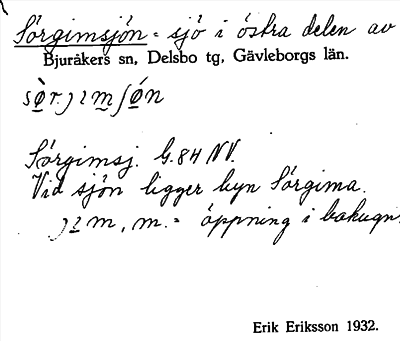 Sörgimsjön = sjö i östra delen av
Bjuråkers sn, Delsbo tg, Gävleborgs län.
Sörgimsj. G. 84 NV.
Vid sjön ligger byn Sörgima.
m. = öppning i bakugn
Erik Eriksson 1932.